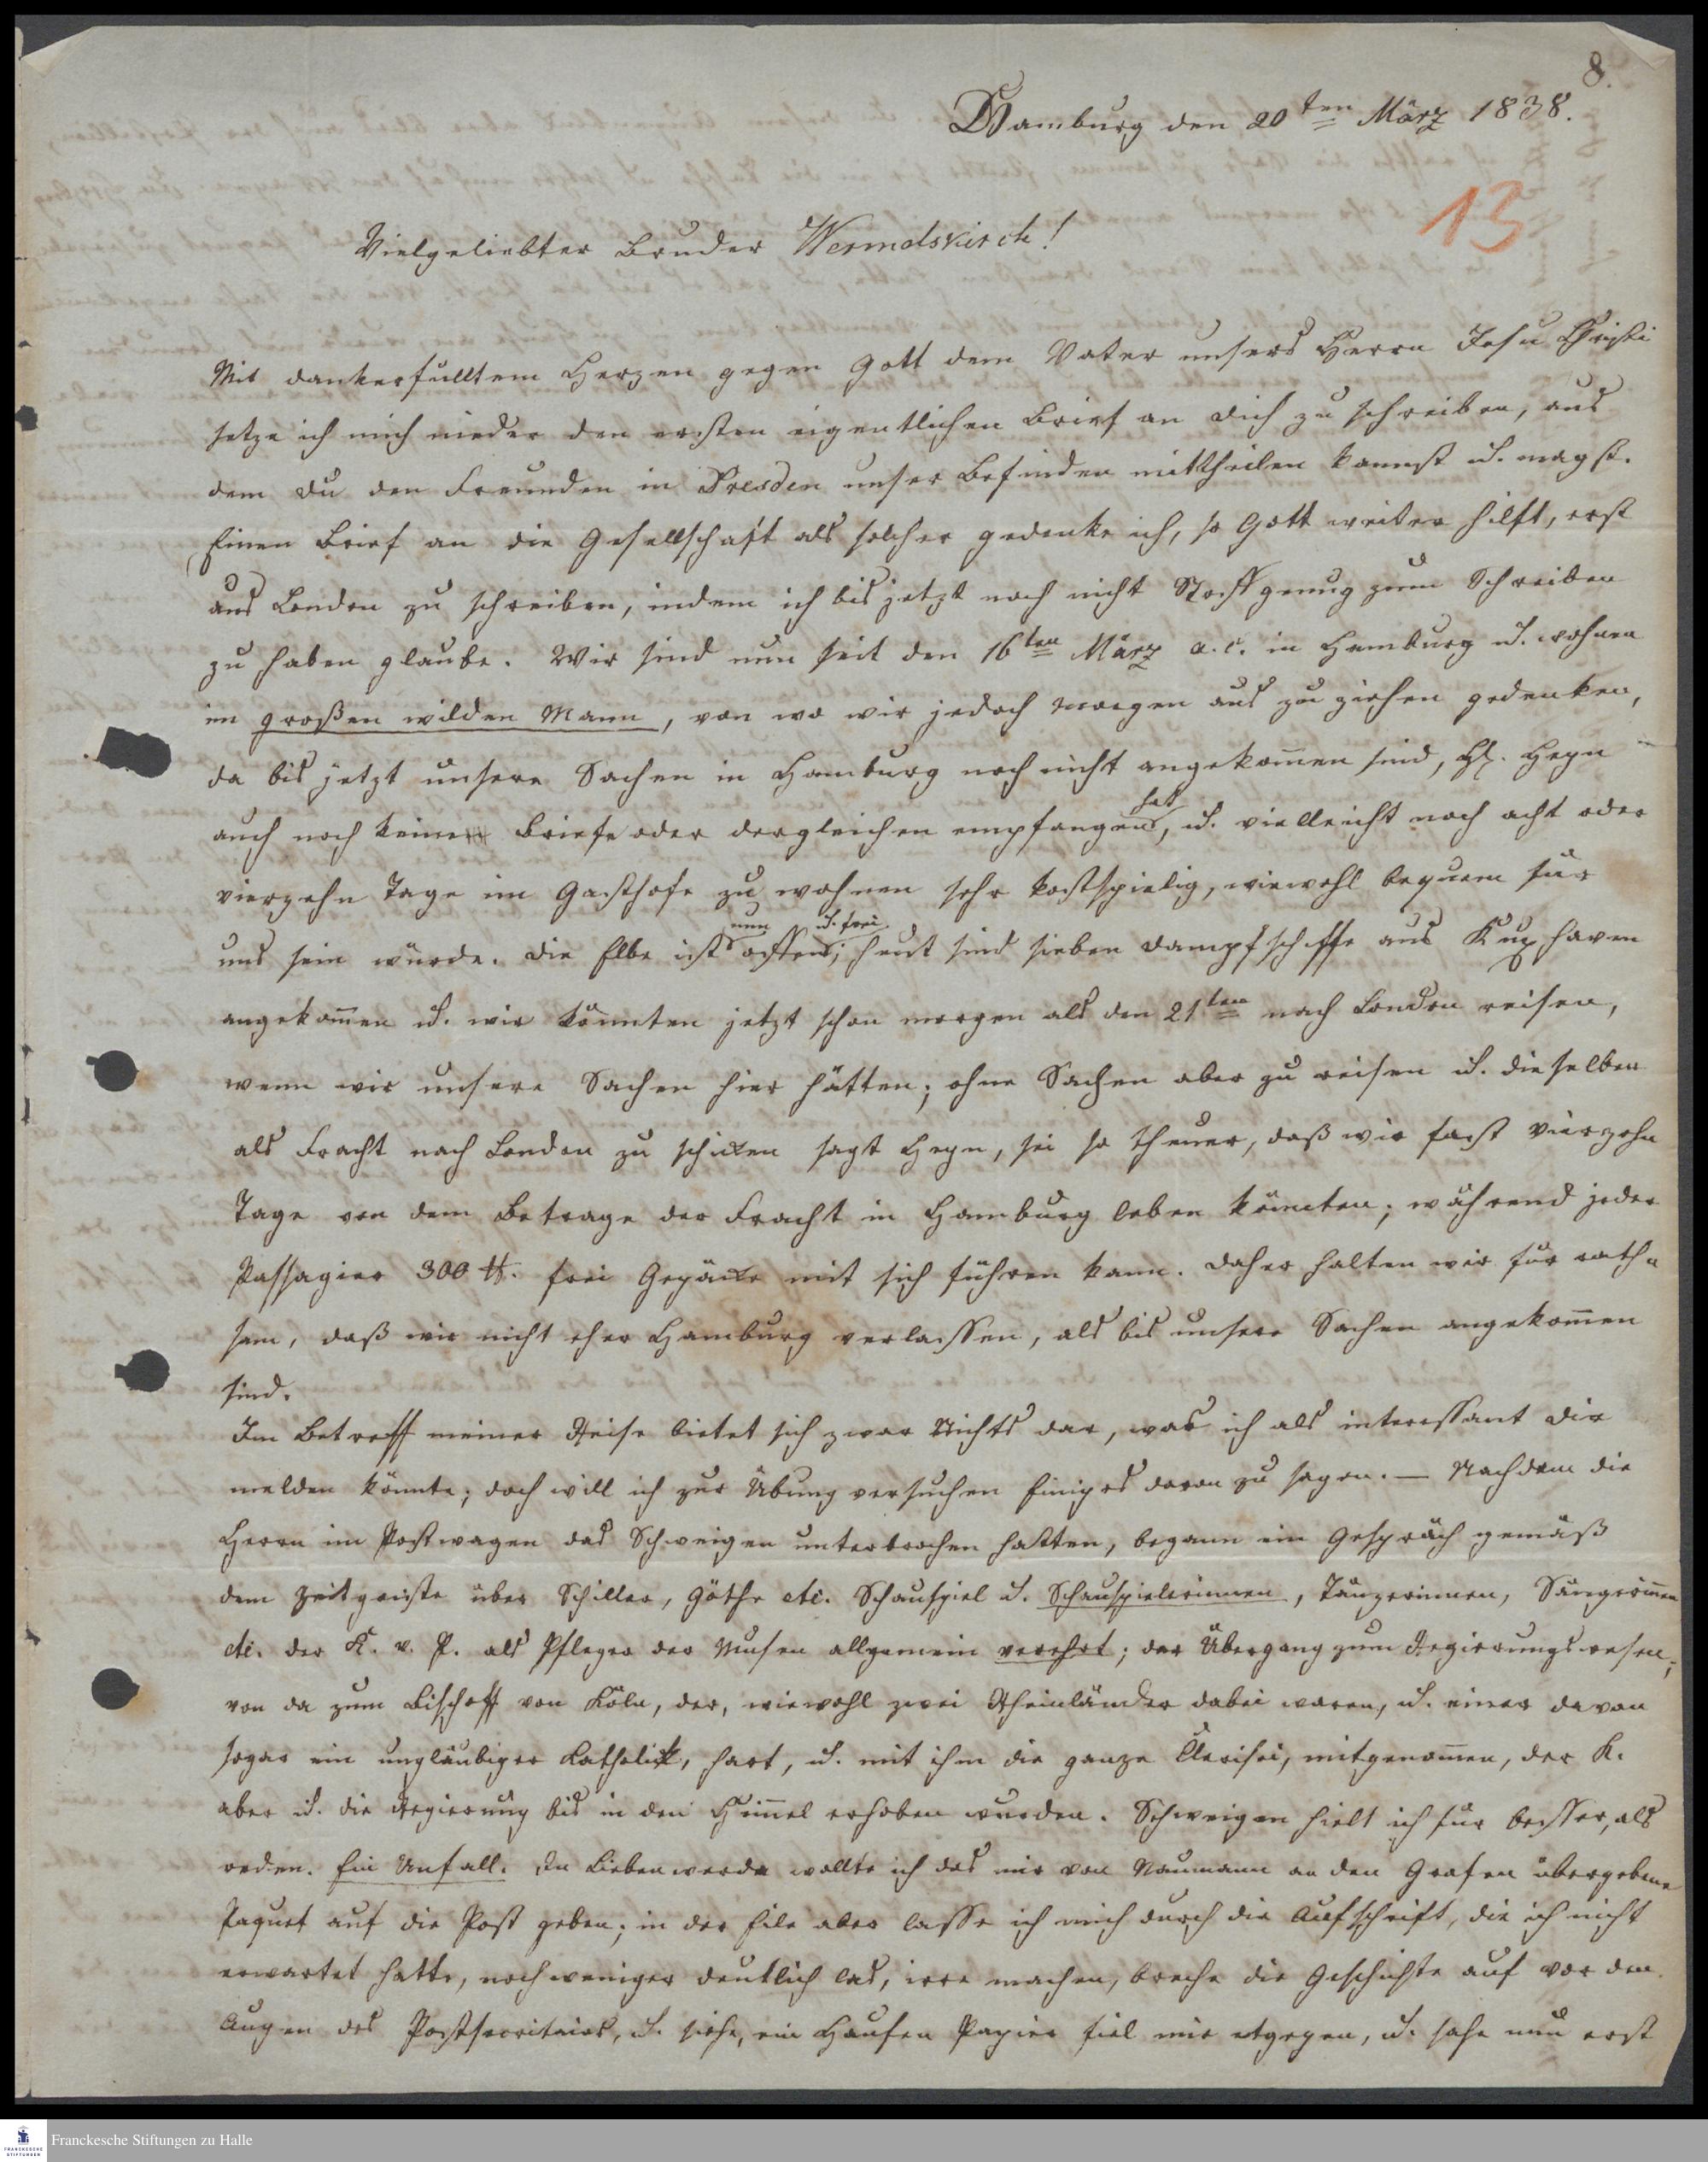 8.
Hamburg den 20ten März 1838.
13
Vielgeliebter Bruder Wermelskirch!
Mit dankerfülltem Herzen gegen Gott dem Vater unsers Herrn Jesu Christi
setze ich mich nieder den ersten eigentlichen Brief an Dich zu schreiben, aus
dem Du den Freunden in Dresden unser Befinden mittheilen kannst u. magst.
Einen Brief an die Gesellschaft als solcher gedenke ich, so Gott weiter hilft, erst
aus London zu schreiben, indem ich bis jetzt noch nicht Stoff genug zum Schreiben
zu haben glaube. Wir sind nun seit den 16ten März a. c. in Hamburg u. wohnen
im großen wilden Mann, von wo wir jedoch morgen aus zu ziehen gedenken,
da bis jetzt unsere Sachen in Hamburg noch nicht angekomen sind, H. Heyn
auch noch keine Briefe oder dergleichen empfangen hat, u. vielleicht noch acht oder
vierzehn Tage im Gasthofe zu wohnen sehr kostspielig, wiewohl bequem für
uns sein würde. Die Elbe ist nun offen u. frei; heut sind sieben Dampfschiffe aus Kuxhaven
angekomen u. wir könnten jetzt schon morgen als den 21ten nach London reisen,
wenn wir unsere Sachen hier hätten; ohne Sachen aber zu reisen u. dieselben
als Fracht nach London zu schicken sagt Heyn, sei so theuer, daß wir fast vierzehn
Tage von dem Betrage der Fracht in Hamburg leben könnten; während jeder
Passagier 300 ℔. frei Gepäcke mit sich führen kann. Daher halten wir für rath-
sam, daß wir nicht eher Hamburg verlassen, als bis unsere Sachen angekomen
sind.
Im Betreff meiner Reise bietet sich zwar Nichts dar, was ich als interessant Dir
melden könnte; doch will ich zur Übung versuchen Einiges davon zu sagen. — Nachdem die
Herrn im Postwagen das Schweigen unterbrochen hatten, begann ein Gespräch gemäß
dem Zeitgeiste über Schiller, Göthe etc. Schauspiel u. Schauspielerinnen, Tänzerinnen, Sängerinnen
etc. der K. v. P. als Pfleger der Musen allgemein verehrt; der Übergang zum Regierungswesen;
von da zum Bischoff von Köln, der, wiewohl zwei Rheinländer dabei waren, u. einer davon
sogar ein ungläubiger Katholick, hart, u. mit ihm die ganze Clerisei, mitgenomen, der K.
aber u. die Regierung bis in den Himel erhoben wurden. Schweigen hielt ich für besser, als
reden. Ein Unfall. In Liebenwerda wollte ich das mir von Naumann an den Grafen übergebene
Paquet auf die Post geben; in der Eile aber lasse ich mich durch die Aufschrift, die ich nicht
erwartet hatte, noch weniger deutlich las, irre machen, breche die Geschichte auf vor den
Augen des Postsecritairs, u. siehe, ein Haufen Papier fiel mir etgegen, u. sahe nun erst
Franckesche Stiftungen zu Halle